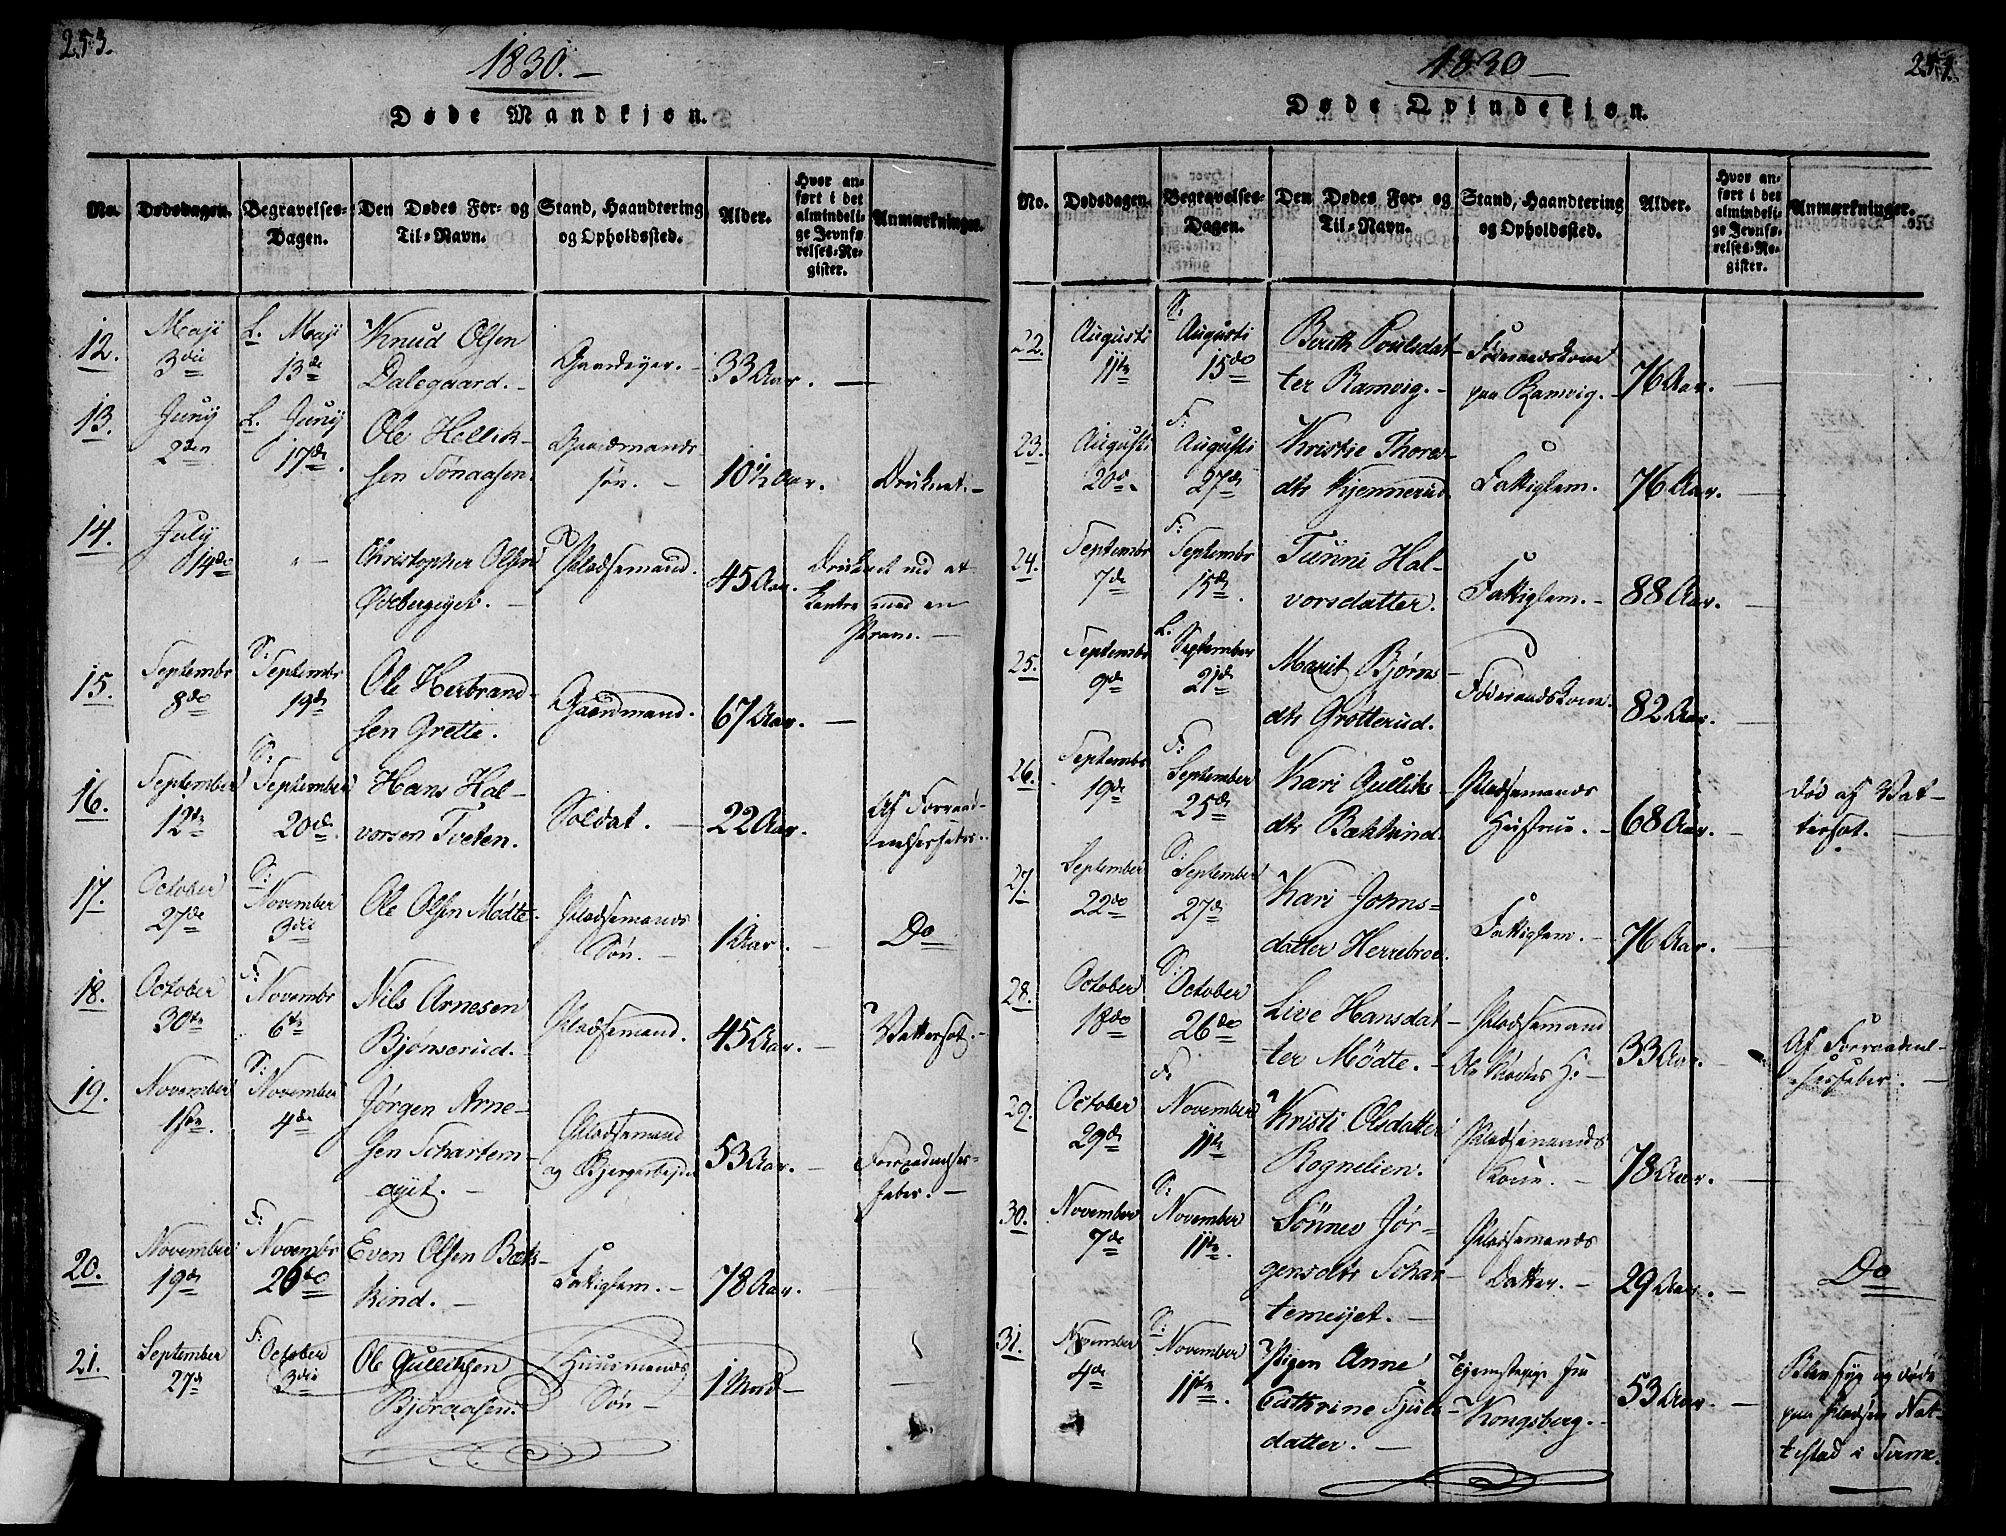 253.
1830. –
Døde Mandkjøn.
No.
Dødsdagen.
Begravelses-
Dagen.
Den Dødes For- og
Til-Navn.
Stand, Haandtering
og Opholdssted.
Alder.
Hvor an-
ført i det
almindeli-
ge Jevnfø-
relses-Re-
gister.
Anmærkninger.
12.
Maji
3die
L. Maji
13de
Knud Olsen
Dalegaard. –
Gaardeyer. –
33 Aar. –
13.
Juny
2den
L. Juny
17de
Ole Hellik-
sen Tonaasen
Gaardmands
søn. –
10½ Aar.
Druknet. –
14.
July
14de
" –
Christopher Olsen
Ødebergeyet. –
Pladsemand.
45 Aar.
Druknet ved at
kantre med en
Pram. –
15.
Septembr
8de
S: September
19de
Ole Herbrand-
sen Grette.
Gaardmand.
67 Aar. –
16.
September
12te
S: September
20de
Hans Hal-
vorsen Tveten.
Soldat. –
22 Aar.
Af Forraad-
nelsesfeber.
17.
October
27de
S: November
3die
Ole Olsen Mødte.
Pladsemands
Søn. –
1 Aar. –
Do
18.
October
30te
F: Novembr
6te
Nils Arnesen
Bjønserud.
Pladsemand.
45 Aar. –
Vattersot. –
19.
November
1ste
T: November
4de
Jørgen Arne-
sen Schartem-
øyet. –
Pladsemand
og Bjergarbejder
53 Aar. –
Forraadnelses-
feber. –
20.
November
19de
F: Novembr
26de
Even Olsen Bæk-
kind. –
Fattiglem. –
78 Aar. –
21.
September
27de
F: October
3die
Ole Gulliksen
Bjøraasen.
Huusmands
Søn –
1 Mnd –
–
254.
1830 –
Døde Qvindekjøn.
No.
Dødsdagen.
Begravelses-
Dagen.
Den Dødes For- og
Til-Navn.
Stand, Haandtering
og Opholdssted.
Alder.
Hvor an-
ført i det
almindeli-
ge Jevnfø-
relses-Re-
gister.
Anmærkninger.
22.
Augusti
11te
S: Augusti
15de
Birith Povelsdat-
ter Ramvig. –
Føderaadskone
paa Ramvig. –
76 Aar. –
23.
Augusti
20de.
F: Augusti
27de
Kristie Thores-
dtr Kjennerud.
Fattiglem. –
76 Aar. –
24.
Septembr
7de
F: Septembr
15de.
Tünni Hal-
vorsdatter.
Fattiglem. –
88 Aar. –
25.
Septembr
9de
L. September
21de
Marit Bjørns-
dtr Grotterud.
Føderaadskone.
82 Aar. –
26.
Septembr
19de
F: September
25de
Kari Gulliks-
dtr Bækkind.
Pladsemands
Hustrue. –
68 Aar. –
død af Vat-
tersot. –
27.
September
22de
S: September
27de
Kari Johns-
datter Herrebroe.
Fattiglem. –
76 Aar. –
28.
October
18de
S: October
26de
Live Hansdat-
ter Mødte. –
Pladsemand
Ole Mødtes H: –
33 Aar. –
Af Forraadnel-
sesfeber. –
29.
October
29de
F: November
11te
Kristi Olsdatter
Rognelien.
Pladsemands
Kone. –
78 Aar. –
30.
November
7de
S: November
11te.
Sönnev Jør-
gensdtr Schar-
temeyet. –
Pladsemands
Datter. –
29 Aar. –
Do
31.
November
4de
S: November
11te.
Pigen Anne
Cathrine Hjuls-
datter. –
Tjenstepige fra
Kongsberg. –
53 Aar. –
Blev syg og døde
paa Pladsen Nat-
testad i